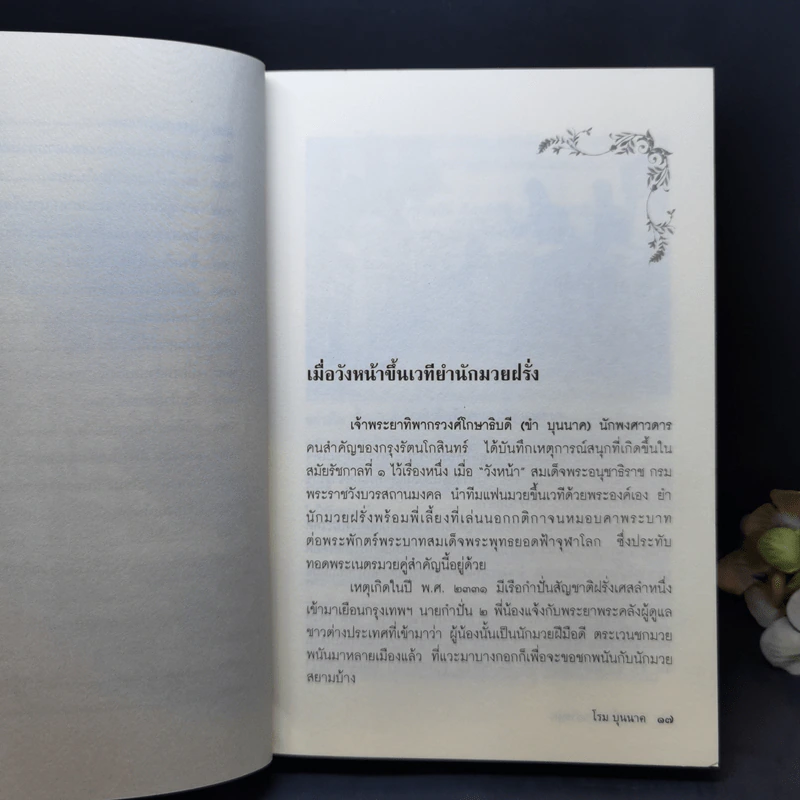 เมื่อวังหน้าขึ้นเวทียำนักมวยฝรั่ง
เจ้าพระยาทิพากรวงศ์โกษาธิบดี (ขำ บุนนาค) นักพงศาวดาร
คนสำคัญของกรุงรัตนโกสินทร์ ได้บันทึกเหตุการณ์สนุกที่เกิดขึ้นใน
สมัยรัชกาลที่ ๑ ไว้เรื่องหนึ่ง เมื่อ “วังหน้า” สมเด็จพระอนุชาธิราช กรม
พระราชวังบวรสถานมงคล นำทีมแฟนมวยขึ้นเวทีด้วยพระองค์เอง ยำ
นักมวยฝรั่งพร้อมพี่เลี้ยงที่เล่นนอกกติกาจนหมอบคาพระบาท
ต่อพระพักตร์พระบาทสมเด็จพระพุทธยอดฟ้าจุฬาโลก ซึ่งประทับ
ทอดพระเนตรมวยคู่สำคัญนี้อยู่ด้วย
เหตุเกิดในปี พ.ศ. ๒๓๓๑ มีเรือกำปั่นสัญชาติฝรั่งเศสลำหนึ่ง
เข้ามาเยือนกรุงเทพฯ นายกำปั่น ๒ พี่น้องแจ้งกับพระยาพระคลังผู้ดูแล
ชาวต่างประเทศที่เข้ามาว่า ผู้น้องนั้นเป็นนักมวยฝีมือดี ตระเวนชกมวย
พนันมาหลายเมืองแล้ว ที่แวะมาบางกอกก็เพื่อจะขอชกพนันกับนักมวย
สยามบ้าง
โรม บุนนาค ๑๗